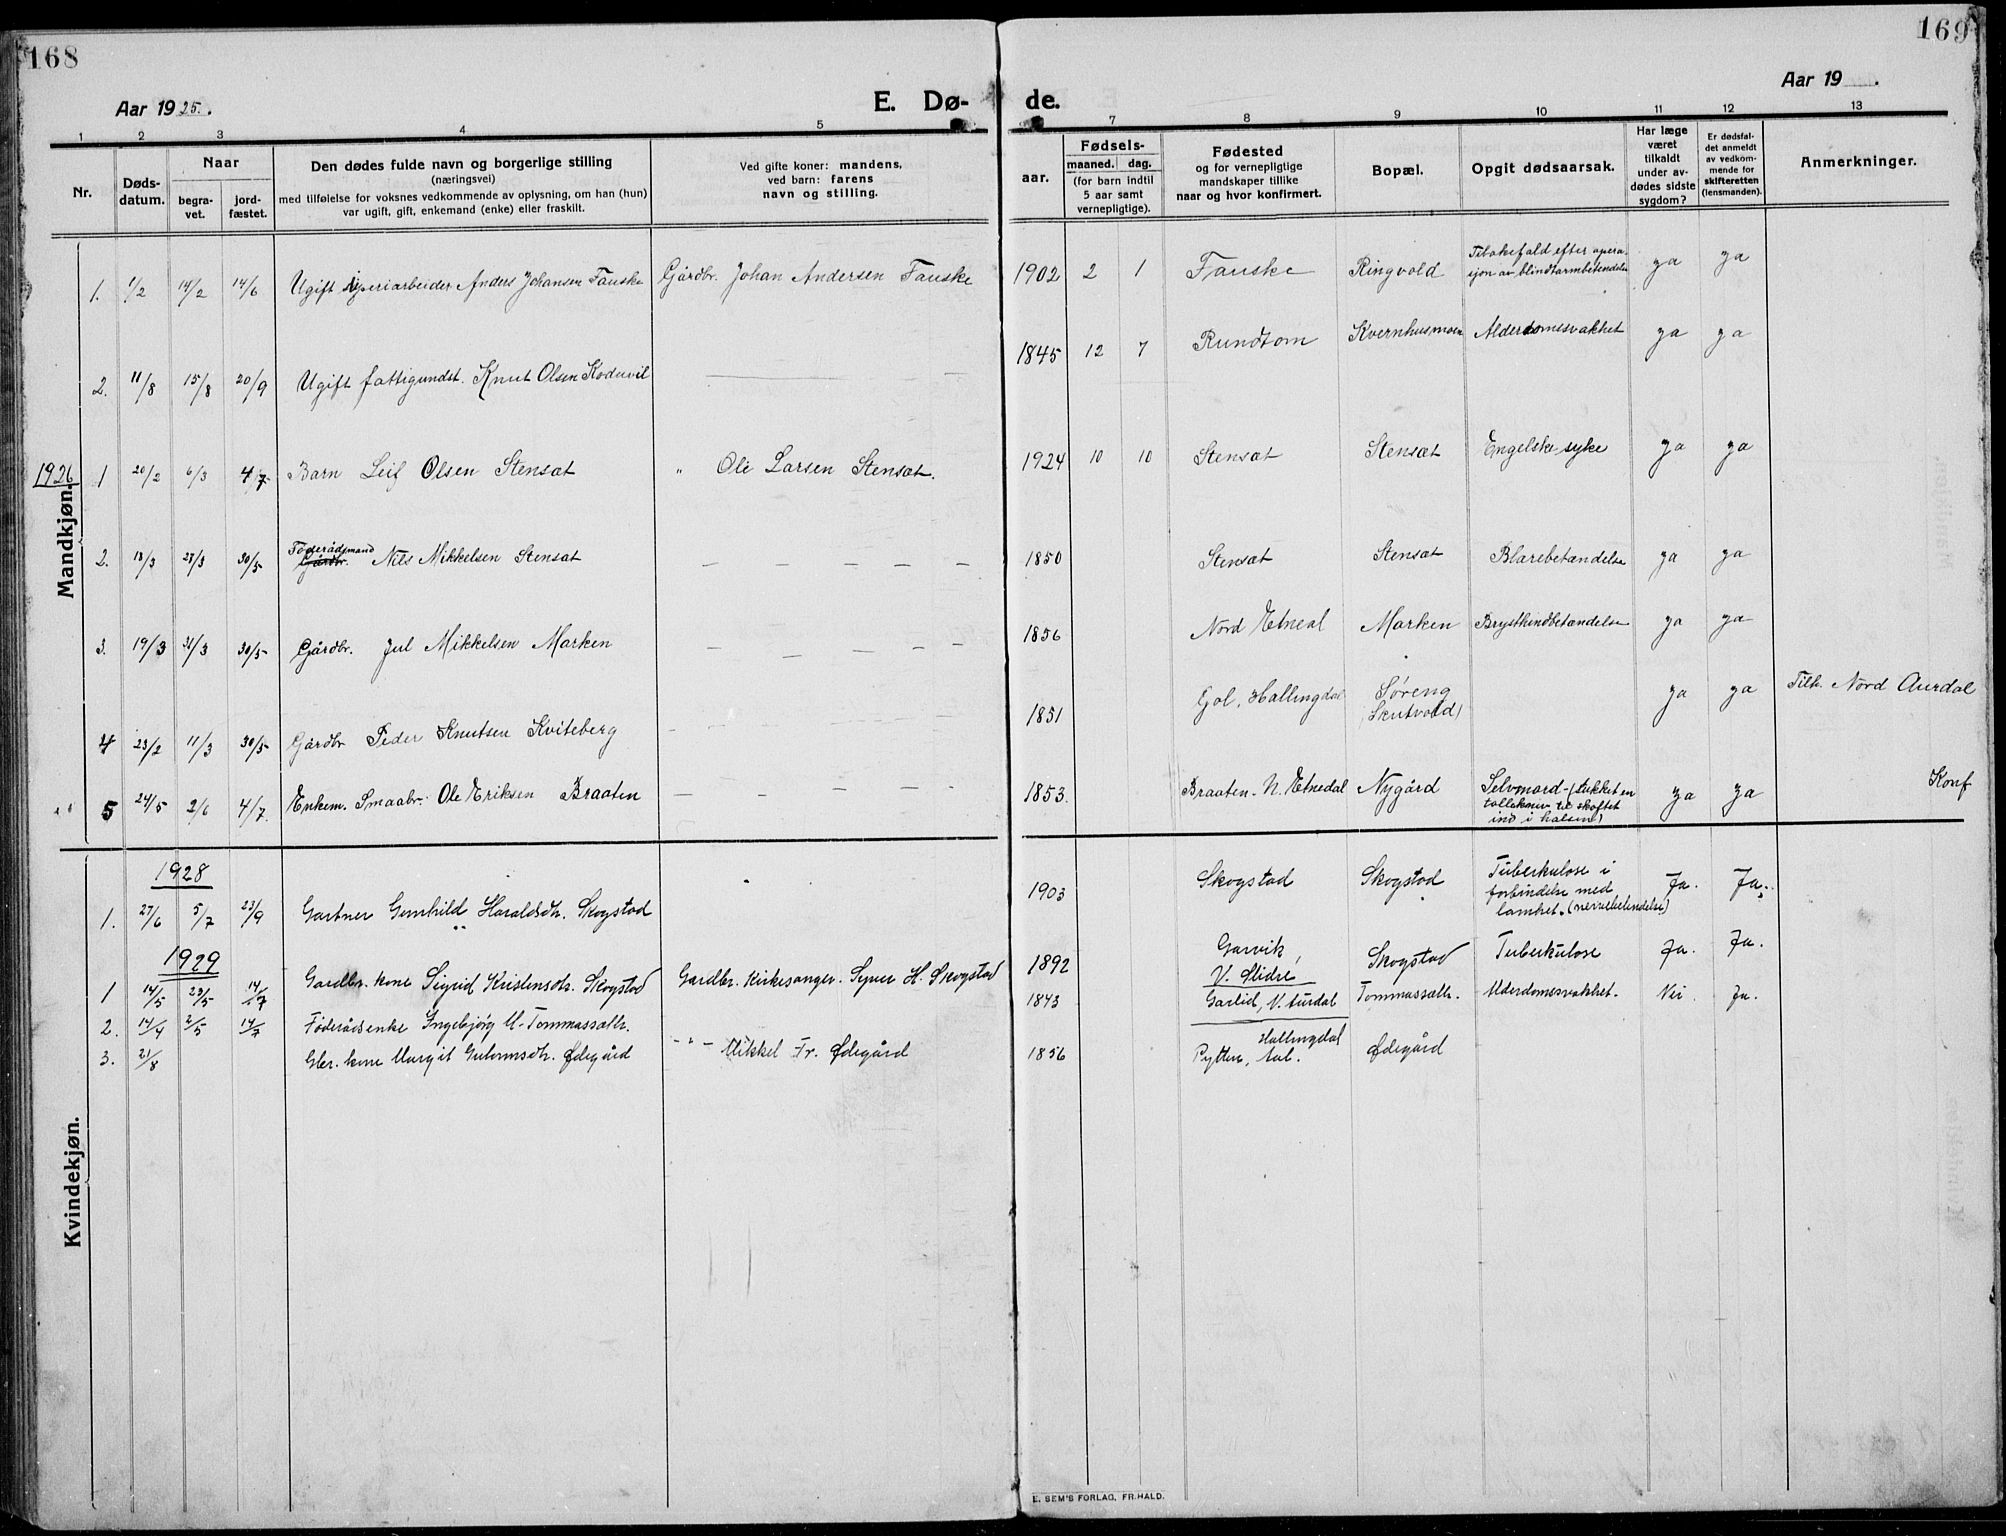 168
169
Aar 1925.
E. Dø-
de.
Aar 19 .
1 2 3 4 5 7 8 9 10 11 12 13
Nr.
Døds-
datum.
Naar
begra-
vet.
jord-
fæstet.
Den dødes fulde navn og borgerlige stilling
(næringsvei)
med tilføielse for voksnes vedkommende av oplysning, om han (hun)
var ugift, gift, enkemand (enke) eller fraskilt.
Ved gifte koner: mandens,
ved barn: farens
navn og stilling.
aar.
Fødsels-
maaned. dag.
(for barn indtil
5 aar samt
vernepligtige).
Fødested
og for vernepligtige
mandskaper tillike
naar og hvor konfirmert.
Bopæl.
Opgit dødsaarsak.
Har læge
været
tilkaldt
under av-
dødes sidste
sygdom?
Er dødsfal-
det anmeldt
av vedkom-
mende for
skifteretten
(lensmanden).
Anmerkninger.
1. 1/2 14/2 14/6 Ugift Anders Johansen Fauske Gårdbr. Johan Andersen Fauske 1902 2 1 Fauske Ringvold Tilbakefald efter opera-
sjon av blindtarmbetendelse ya ya
2. 11/8 15/8 20/9 Ugift fattigundst. Knut Olsen 1845 12 7 Rundtom Kvernhusmoen Alderdomssvakhet ya ya
1926
Mandkjøn.
1 20/2 6/3 4/7 Barn Leif Olsen Stensæt " Ole Larsen Stensæt. 1924 10 10 Stensæt Stensæt Engelske syke ya ya
2. 18/3 27/3 30/5 Føderådsmand
Gårdbr. Nils Mikkelsen Stensæt — — — — — — 1850 Stensæt Stensæt Blærebetændelse ya ya
3. 19/3 31/3 30/5 Gårdbr. Jul Mikkelsen Marken — — — — — — 1856 Nord Etnedal Marken Brysthindbetændelse ya ya
4 23/2 11/3 30/5 Gårdbr Peder Knutsen Kviteberg — — — — — — 1851 Gol, Hallingdal Søreng
Skutvold) ya ya Tilh. Nord Aurdal
5 24/5 2/6 4/7. Enkem. Smaabr. Ole Eriksen Braaten — — — — — — 1853. Braaten - N. Etnedal Nygård Selvmord - (stukket en
tollekniv til skaftet
ind i halsen) ya ya Konf
Kvindekjøn.
1928
1. 27/6 5/7 23/9 Gartner Gunhild Haraldsdtr. Skogstad 1903 Skogstad Skogstad Tuberkulose i
forbindelse med
lamhet. (nervebetendelse) Ja. Ja.
1929
1 14/5 23/5 14/7 Gardbr. kone Sigrid Kristensdtr. Skogstad Gardbr. Kirkesanger. Syver H. Skogstad 1892 Garvik
V. Slidre Skogstad Tuberkulose Ja. Ja.
2. 14/4 2/5 14/7 Føderådsenke Ingebjørg M. Tommassætr. 1843 Garlid, V. Aurdal Tommassætr. Alderdomssvakhet. Nei Ja.
3. 21/8 Gbr. kone Margit Gulormsdtr. Ødegård - " - Mikkel Fr. Ødegård 1856 Hallingdal
Pytten, Aal. Ødegård
E. SEM'S FORLAG, FR.HALD.